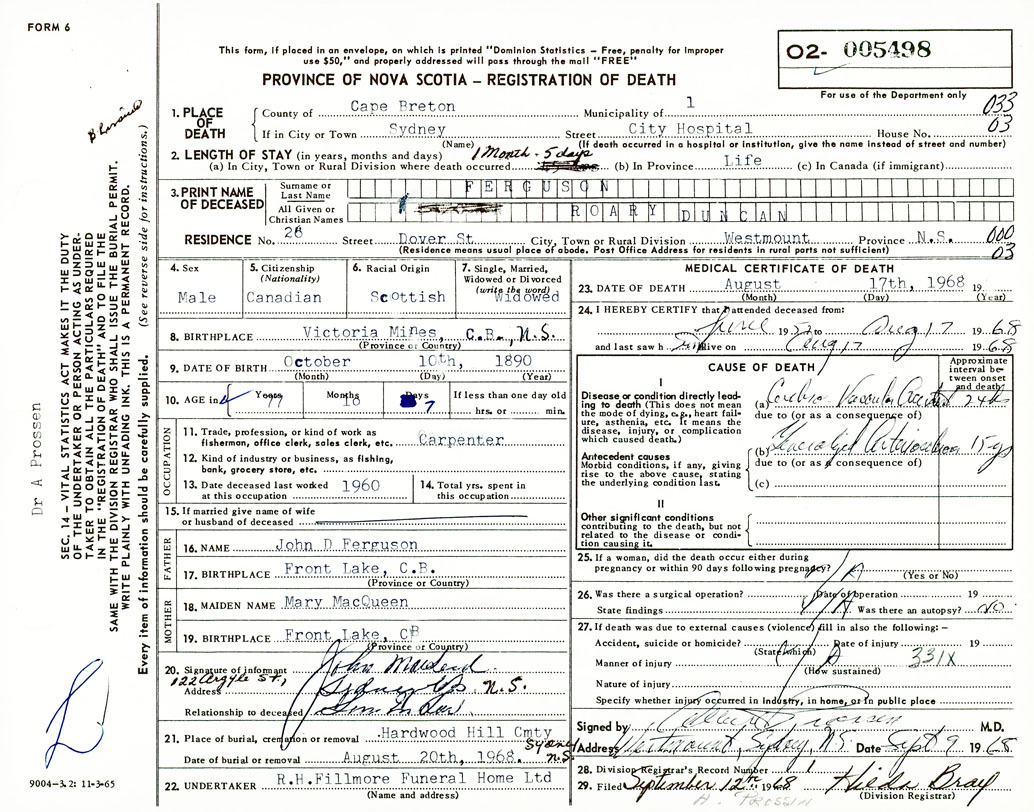 FORM 6
This form, if placed in an envelope, on which is printed "Dominion Statistics – Free, penalty for improper
use $50," and properly addressed will pass through the mail "FREE"
O2- 005498
PROVINCE OF NOVA SCOTIA – REGISTRATION OF DEATH
For use of the Department only
1. PLACE OF DEATH
County of Cape Breton Municipality of 1 033
If in City or Town Sydney Street City Hospital House No. 03
(Name) (If death occurred in a hospital or institution, give the name instead of street and number)
2. LENGTH OF STAY (in years, months and days) 1 Month - 5 days
(a) In City, Town or Rural Division where death occurred (b) In Province Life (c) In Canada (if immigrant)
3. PRINT NAME OF DECEASED
Surname or Last Name FERGUSON
All Given or Christian Names ROARY DUNCAN
RESIDENCE No. 28 Street Dover St. City, Town or Rural Division Westmount Province N.S. 000
(Residence means usual place of abode. Post Office Address for residents in rural parts not sufficient) 03
4. Sex
Male
5. Citizenship
(Nationality)
Canadian
6. Racial Origin
Scottish
7. Single, Married,
Widowed or Divorced
(write the word)
Widowed
8. BIRTHPLACE Victoria Mines, C.B., N.S.
(Province or Country)
9. DATE OF BIRTH October 10th, 1890
(Month) (Day) (Year)
10. AGE in Years 77 Months 10 Days 7 If less than one day old
hrs. or min.
OCCUPATION
11. Trade, profession, or kind of work as
fisherman, office clerk, sales clerk, etc. Carpenter
12. Kind of industry or business, as fishing,
bank, grocery store, etc.
13. Date deceased last worked
at this occupation 1960
14. Total yrs. spent in
this occupation
15. If married give name of wife
or husband of deceased
FATHER
16. NAME John D Ferguson
17. BIRTHPLACE Front Lake, C.B.
(Province or Country)
MOTHER
18. MAIDEN NAME Mary MacQueen
19. BIRTHPLACE Front Lake, CB
(Province or Country)
20. Signature of informant John MacLeod
Address 122 Argyle St., Sydney C.B. N.S.
Relationship to deceased Son in Law
21. Place of burial, cremation or removal Hardwood Hill Cmty
Sydney N.S.
Date of burial or removal August 20th, 1968.
22. UNDERTAKER R.H.Fillmore Funeral Home Ltd
(Name and address)
MEDICAL CERTIFICATE OF DEATH
23. DATE OF DEATH August 17th, 1968 19
(Month) (Day) (Year)
24. I HEREBY CERTIFY that I attended deceased from:
June 19 to Aug 17 1968
and last saw h alive on Aug 17 1968
CAUSE OF DEATH
Approximate
interval be-
tween onset
and death
I
Disease or condition directly lead-
ing to death (This does not mean
the mode of dying, e.g., heart fail-
ure, asthenia, etc. It means the
disease, injury, or complication
which caused death.)
(a) Cerebro Vascular Accident
due to (or as a consequence of)
Antecedent causes
Morbid conditions, if any, giving
rise to the above cause, stating
the underlying condition last.
(b) Generalized Arteriosclerosis 15 yrs
due to (or as a consequence of)
(c)
II
Other significant conditions
contributing to the death, but not
related to the disease or condi-
tion causing it.
25. If a woman, did the death occur either during
pregnancy or within 90 days following pregnancy? N/A
(Yes or No)
26. Was there a surgical operation? Date of operation 19
State findings N/A Was there an autopsy? NO
27. If death was due to external causes (violence) fill in also the following:–
Accident, suicide or homicide? Date of injury 19
(State which)
Manner of injury 331X
(How sustained)
Nature of injury
Specify whether injury occurred in industry, in home, or in public place
Signed by Prossen M.D.
Address Westmount, Sydney, N.S. Date Sept 9 1968
28. Division Registrar's Record Number
29. Filed September 12th 1968 Hilda Bray
(Division Registrar)
A. PROSSEN
Dr A Prossen
SEC. 14 – VITAL STATISTICS ACT MAKES IT THE DUTY
OF THE UNDERTAKER OR PERSON ACTING AS UNDER-
TAKER TO OBTAIN ALL THE PARTICULARS REQUIRED
IN THE "REGISTRATION OF DEATH" AND TO FILE THE
SAME WITH THE DIVISION REGISTRAR WHO SHALL ISSUE THE BURIAL PERMIT.
WRITE PLAINLY WITH UNFADING INK. THIS IS A PERMANENT RECORD.
Every item of information should be carefully supplied. (See reverse side for instructions.)
9004–3.2: 11-3-65